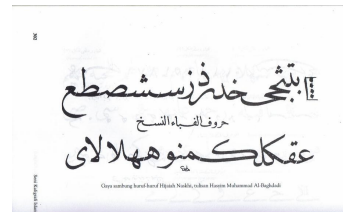 ابتثجحى خدرذزسشصطع
حروف الفباء النسخ
عقكلكمنوههلالاى
Gaya sambung huruf-huruf Hijaiah Naskhi, tulisan Hasyim Muhammad Al-Baghdadi
Seni Kaligrafi Islam